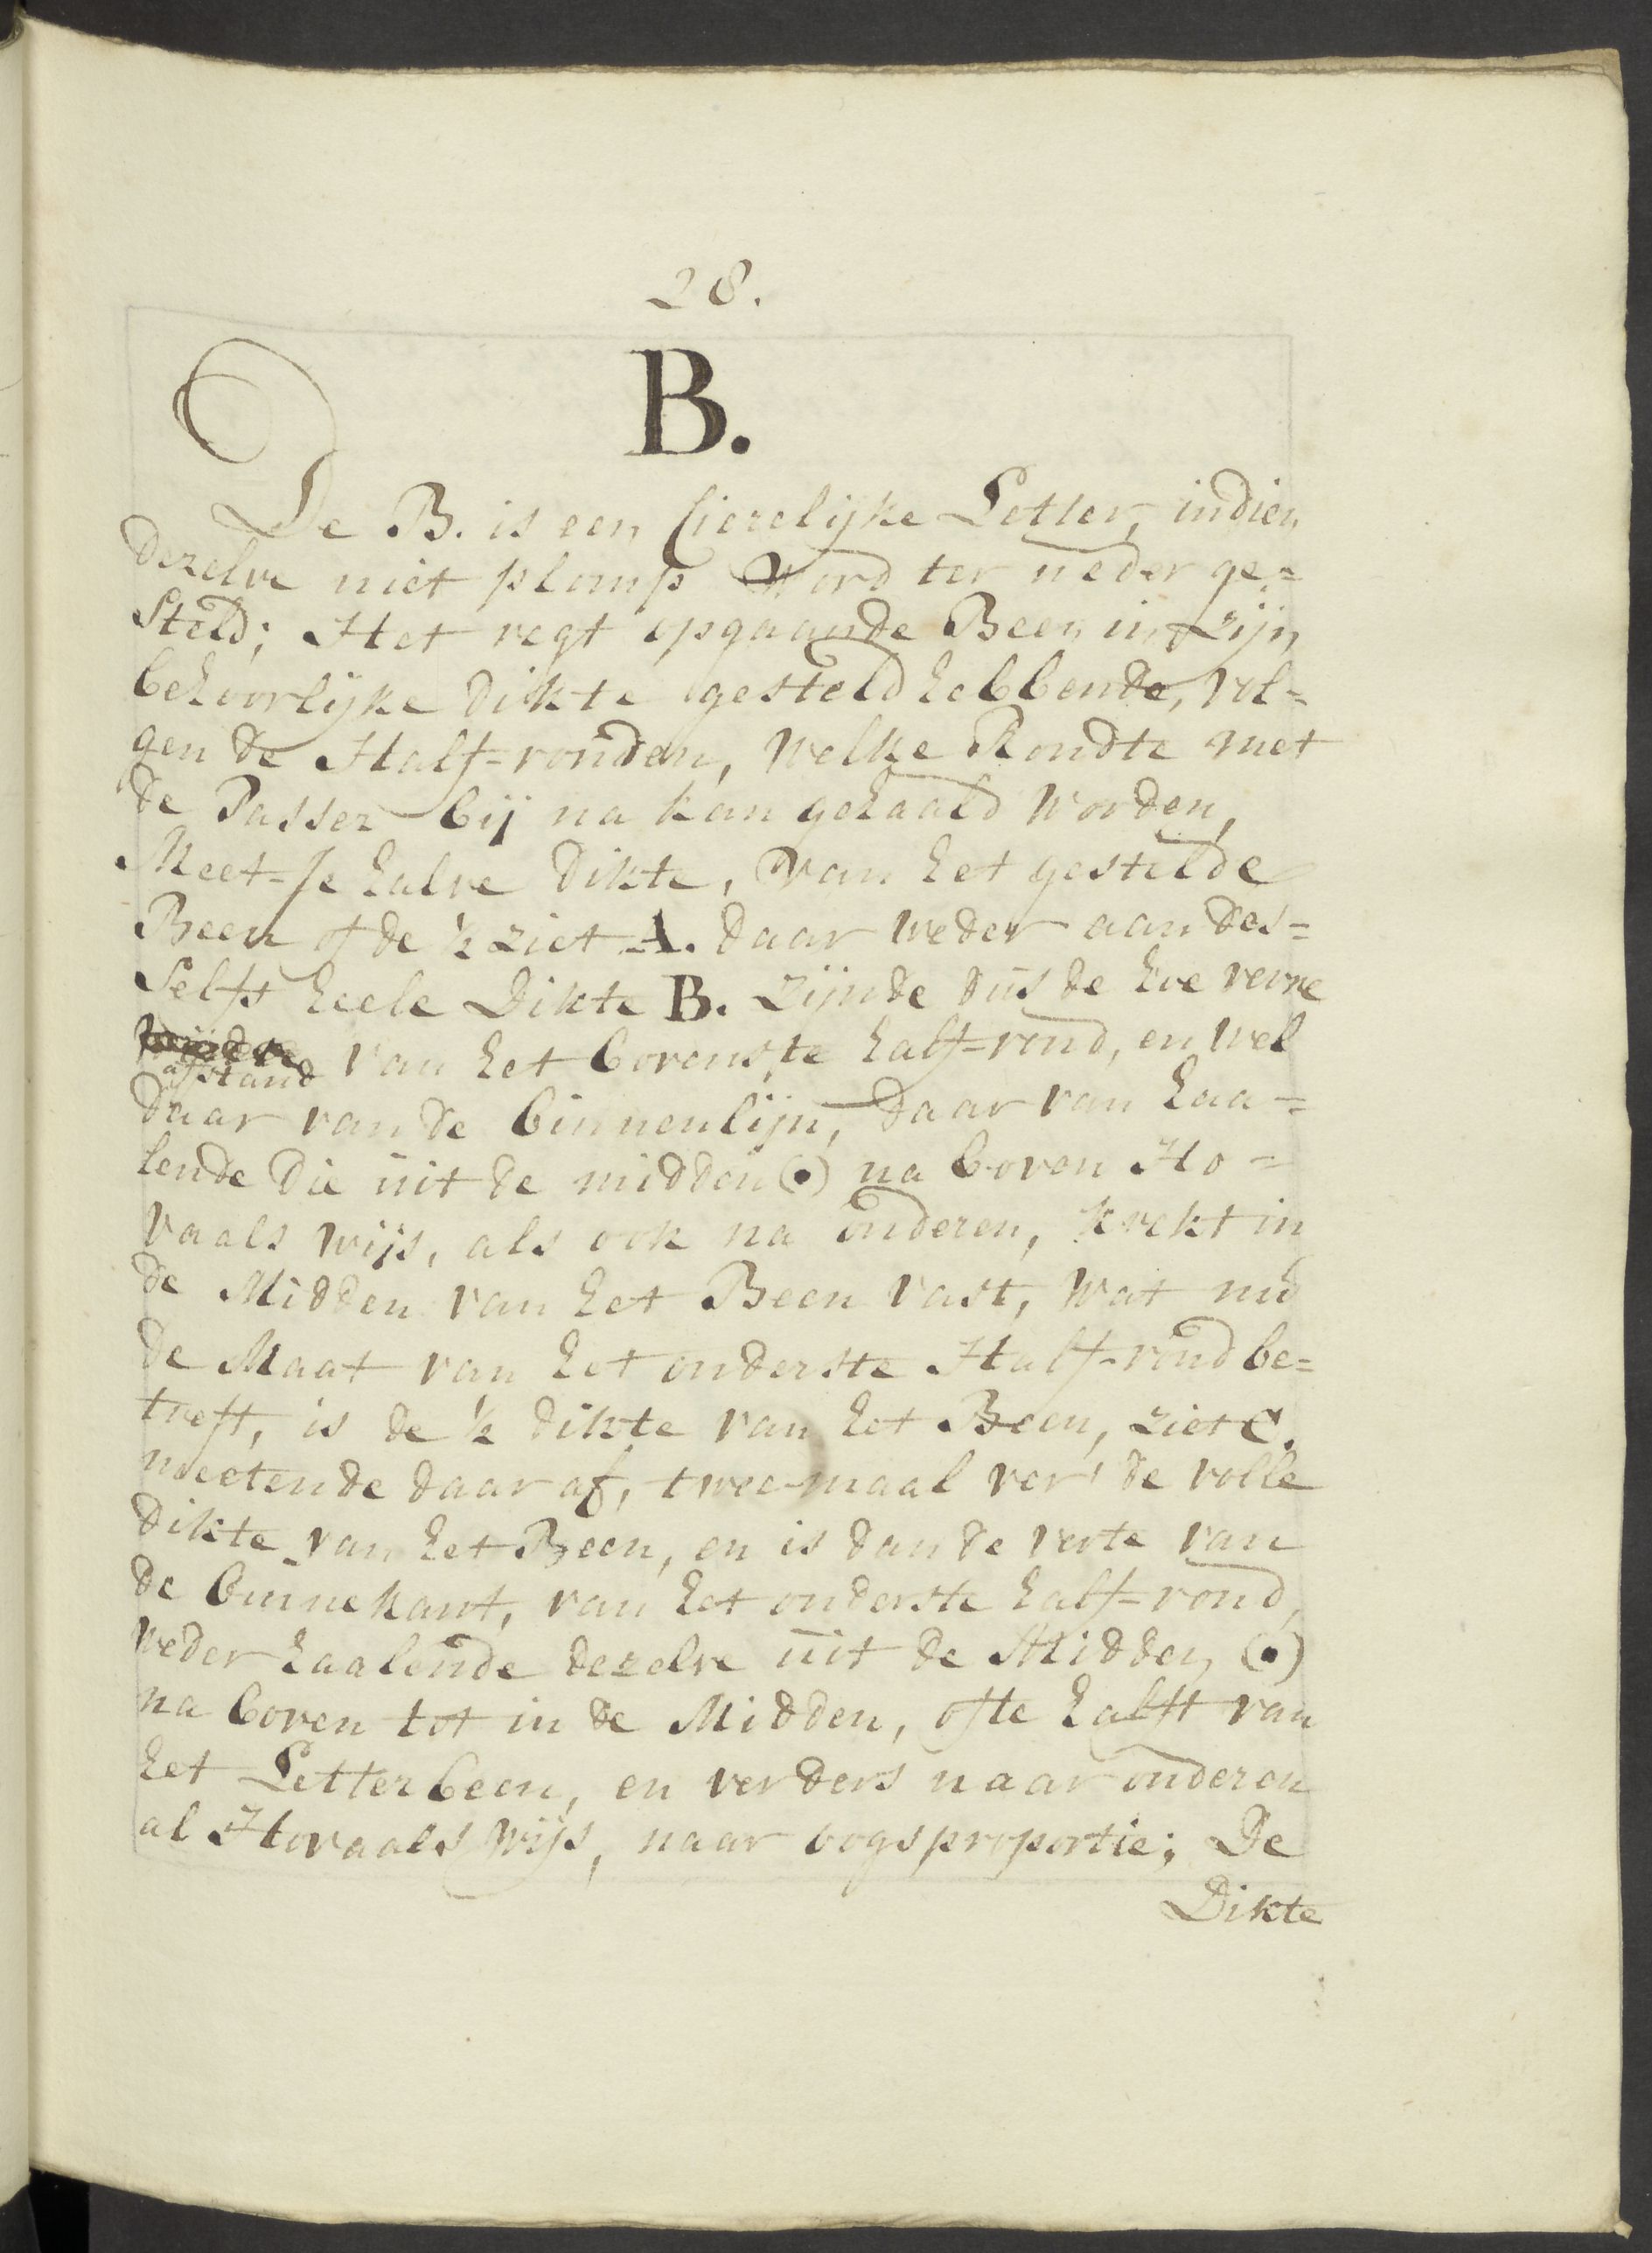 28.
B.
De B. is een Cierelijke Letter, indien
dezelve niet plomp Word ter neder ge=
Steld; Het regt opgaande Been in zijn
behoorlijke dikte gesteld hebbende, vol=
gen de Half=ronden, welke Rondte met
de Passer bij na kan gehaald worden,
Meet=Je halve dikte, van het gestelde
Been of de ½ ziet A. daar weder aan des=
Selfs heele Dikte B. zijnde dus de hoe verre
afstand van het bovenste half=rond, en wel
daar van de binnenlijn, daar van haa=
lende die uit de midden (•) na boven Ho=
vaals wijs, als ook na onderen, krekt in
de Midden van het Been vast, wat nu
de Maat van het onderste Half=rond be=
treft, is de ½ dikte van het Been, ziet C.
meetende daar af, twee-maal ver de volle
dikte van het Been, en is dan de verte van
de binnekant, van het onderste half=rond,
weder haalende dezelve uit de Midden (•)
na boven tot in de Midden, ofte halft van
het Letterbeen, en verders naar onderen
al Hovaals wijs, naar oogsproportie; De
Dikte